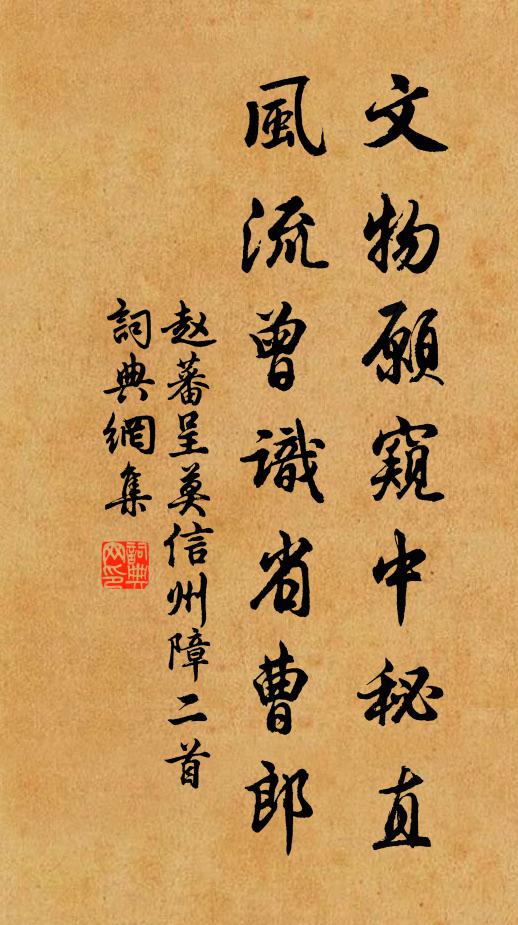 文物願窺中秘直
風流曾識省曹郎
赵蕃呈莫信州障二首
詞典網集
詞典網印